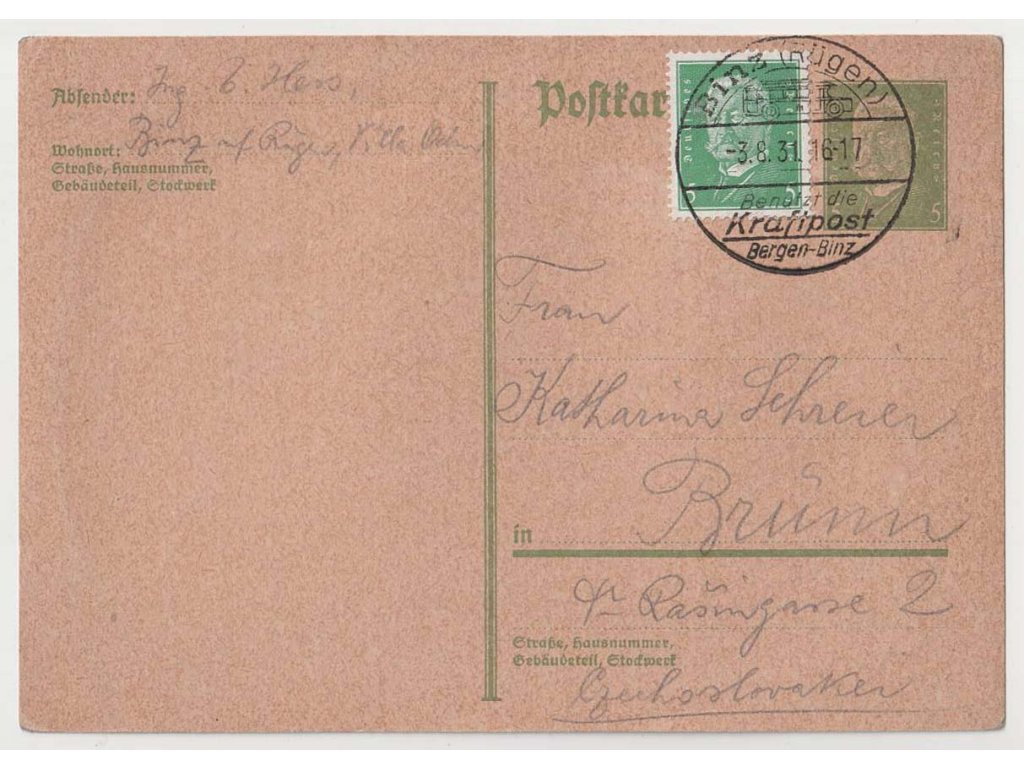 Absender: Ing. E. Hess,
Wohnort: Binz auf Rügen, Villa
Straße, Hausnummer,
Gebäudeteil, Stockwerk
Postkar
Binz (Rügen)
-3.8.31. 16-17
Benutzt die
Kraftpost
Bergen-Binz
5
5
5
Frau
Katharina Schreier
in Brünn
Dr Rašingasse 2
Straße, Hausnummer,
Gebäudeteil, Stockwerk
Czechoslovakei